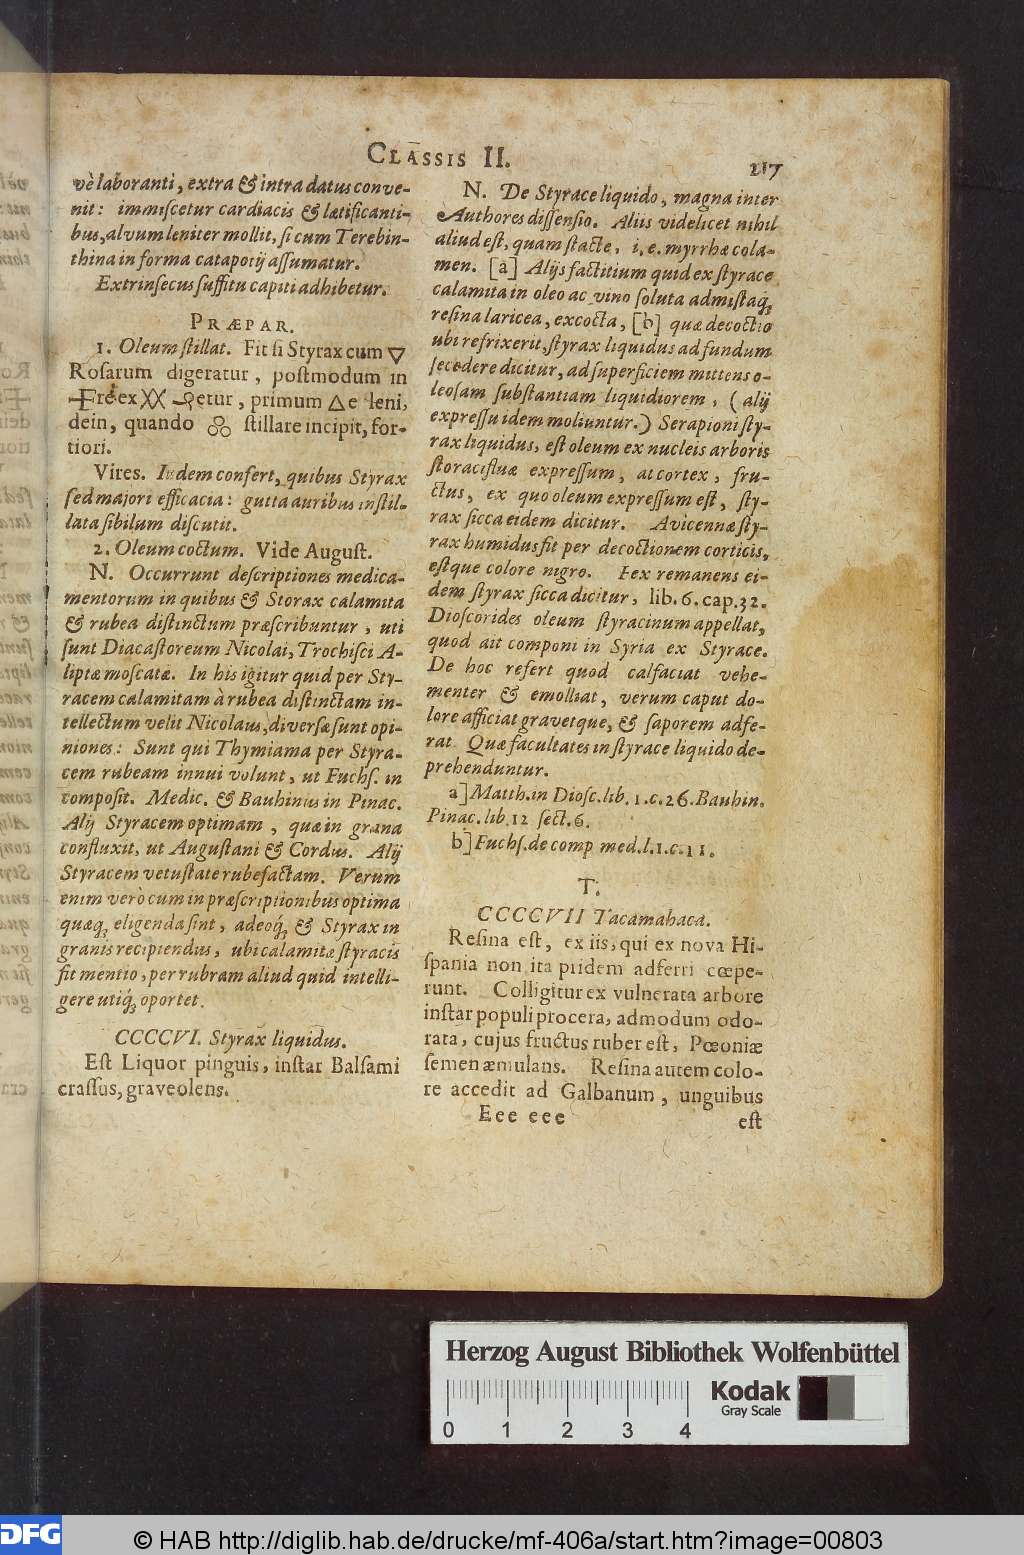 CLASSIS II.
217
vè laboranti, extra & intra datus conve-
nit: immiscetur cardiacis & lætificanti-
bus, alvum leniter mollit, si cum Terebin-
thina in forma catapotij assumatur.
Extrinsecus suffitu capiti adhibetur.
PRÆPAR.
1. Oleum stillat. Fit si Styrax cum 🜄
Rosarum digeratur, postmodum in
ex etur, primum △e leni,
dein, quando stillare incipit, for-
tiori.
Vires. Iisdem confert, quibus Styrax
sed majori efficacia: gutta auribus instil-
lata sibilum discutit.
2. Oleum coctum. Vide August.
N. Occurrunt descriptiones medica-
mentorum in quibus & Storax calamita
& rubea distinctum præscribuntur, uti
sunt Diacastoreum Nicolai, Trochisci A-
liptæ moscatæ. In his igitur quid per Sty-
racem calamitam à rubea distinctam in-
tellectum velit Nicolaus, diversæ sunt opi-
niones: Sunt qui Thymiama per Styra-
cem rubeam innui volunt, ut Fuchs. in
composit. Medic. & Bauhinius in Pinac.
Alij Styracem optimam, quæ in grana
confluxit, ut Augustani & Cordus. Alij
Styracem vetustate rubefactam. Verum
enim verò cum in præscriptionibus optima
quæq; eligenda sint, adeoq; & Styrax in
granis recipiendus, ubi calamitæ styracis
fit mentio, per rubram aliud quid intelli-
gere utiq; oportet.
CCCCVI. Styrax liquidus.
Est Liquor pinguis, instar Balsami
crassus, graveolens.
N. De Styrace liquido, magna inter
Authores dissensio. Aliis videlicet nihil
aliud est, quam stacte, i, e. myrrhæ cola-
men. [a] Alijs factitium quid ex styrace
calamita in oleo ac vino soluta admistaq;
resina laricea, excocta, [b] quæ decoctio
ubi refrixerit, styrax liquidus ad fundum
secedere dicitur, ad superficiem mittens o-
leosam substantiam liquidiorem, (alij
expressu idem moliuntur.) Serapioni sty-
rax liquidus, est oleum ex nucleis arboris
storacifluæ expressum, at cortex, fru-
ctus, ex quo oleum expressum est, sty-
rax sicca eidem dicitur. Avicennæ sty-
rax humidus fit per decoctionem corticis,
estque colore nigro. Fex remanens ei-
dem styrax sicca dicitur, lib. 6. cap. 32.
Dioscorides oleum styracinum appellat,
quod ait componi in Syria ex Styrace.
De hoc refert quod calfaciat vehe-
menter & emolliat, verum caput do-
lore afficiat gravetque, & saporem adfe-
rat. Quæ facultates in styrace liquido de-
prehenduntur.
a] Matth. in Diosc. lib. 1. c. 26. Bauhin.
Pinac. lib. 12 sect. 6.
b] Fuchs. de comp med. l. 1. c. 11.
T.
CCCCVII Tacamahaca.
Resina est, ex iis, qui ex nova Hi-
spania non ita pridem adferri cœpe-
runt. Colligitur ex vulnerata arbore
instar populi procera, admodum odo-
rata, cujus fructus ruber est, Pœoniæ
semen æmulans. Resina autem colo-
re accedit ad Galbanum, unguibus
Eee eee
est
Herzog August Bibliothek Wolfenbüttel
Kodak
Gray Scale
0 1 2 3 4
DFG
© HAB http://diglib.hab.de/drucke/mf-406a/start.htm?image=00803